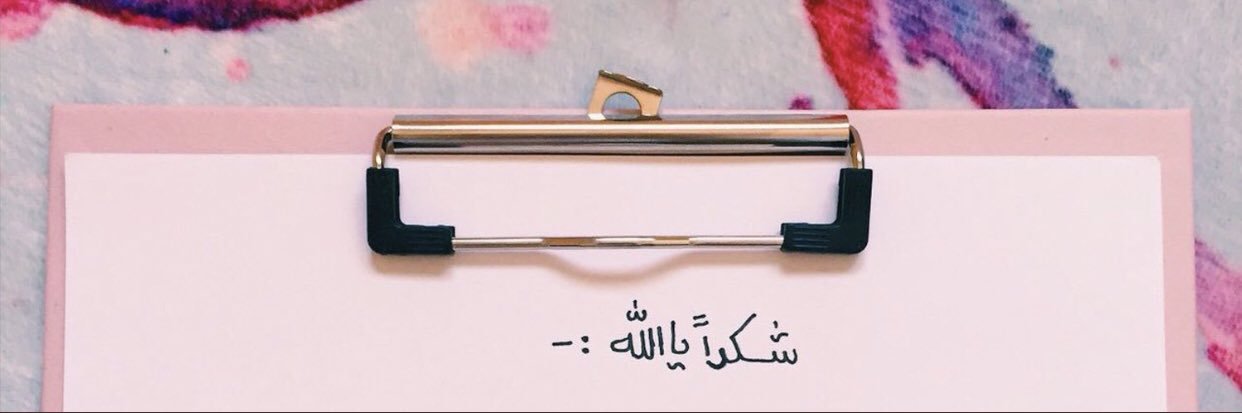 شكراً ياالله :-